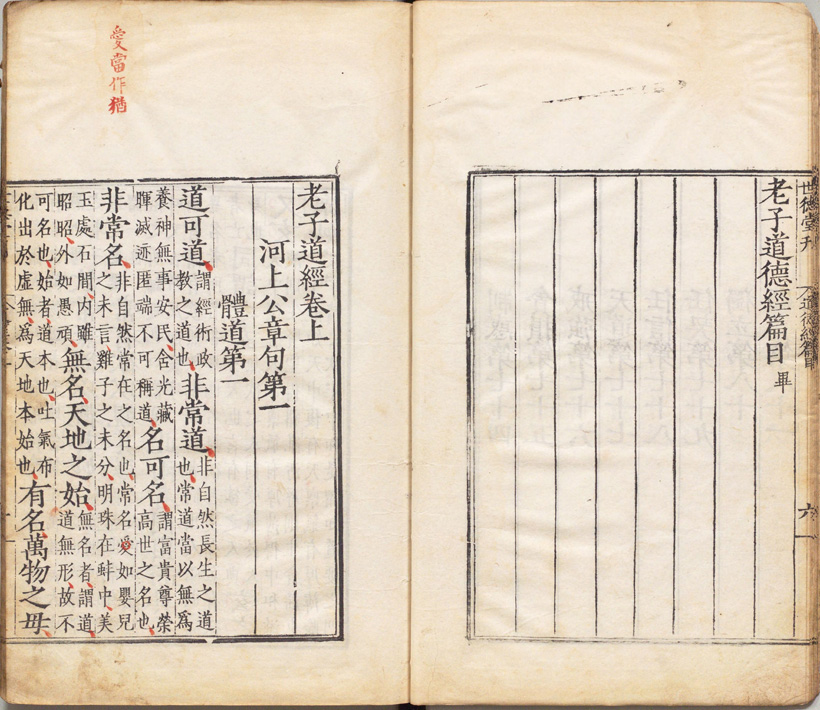 世德堂刊 道德經篇目 六
老子道德經篇目 畢
愛當作猶
老子道經卷上
河上公章句第一
體道第一
道可道謂經術政教之道也非常道非自然長生之道也常道當以無爲
養神無事安民含光藏暉滅迹匿端不可稱道名可名謂富貴尊榮高世之名也
非常名非自然常在之名也常名愛如嬰兒之未言雞子之未分明珠在蚌中美
玉處石間内雖昭昭外如愚頑無名天地之始無名者謂道道無形故不
可名也始者道本也吐氣布化出於虛無爲天地本始也有名萬物之母